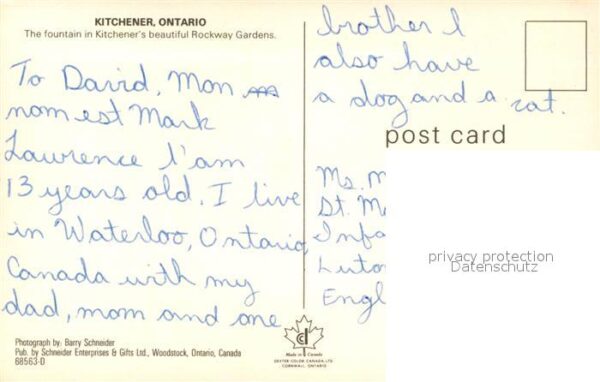 KITCHENER, ONTARIO
The fountain in Kitchener's beautiful Rockway Gardens.
To David, Mon
nom est Mark
Lawrence I'am
13 years old. I live
in Waterloo, Ontario,
Canada with my
dad, mom and one
brother I
also have
a dog and a cat.
post card
Ms. M
St. M
Infa
Luto
Engl
privacy protection
Datenschutz
Photograph by: Barry Schneider
Pub. by Schneider Enterprises & Gifts Ltd., Woodstock, Ontario, Canada
68563-D
Made in Canada
DEXTER COLOR CANADA LTD.
CORNWALL, ONTARIO